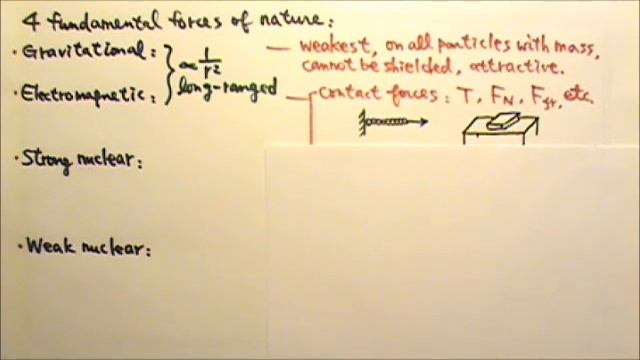 4 fundamental forces of nature:
· Gravitational: } ∝ 1/r² — weakest, on all particles with mass,
cannot be shielded, attractive.
· Electromagnetic: } long-ranged — contact forces: T, F_N, F_fr, etc.
· Strong nuclear:
· Weak nuclear: